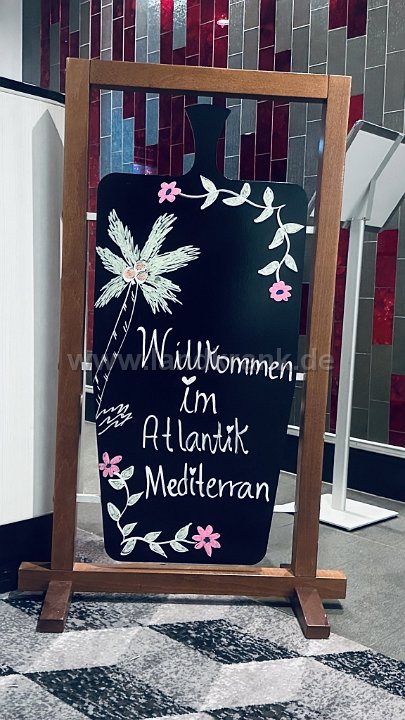 Willkommen
im
Atlantik
Mediterran